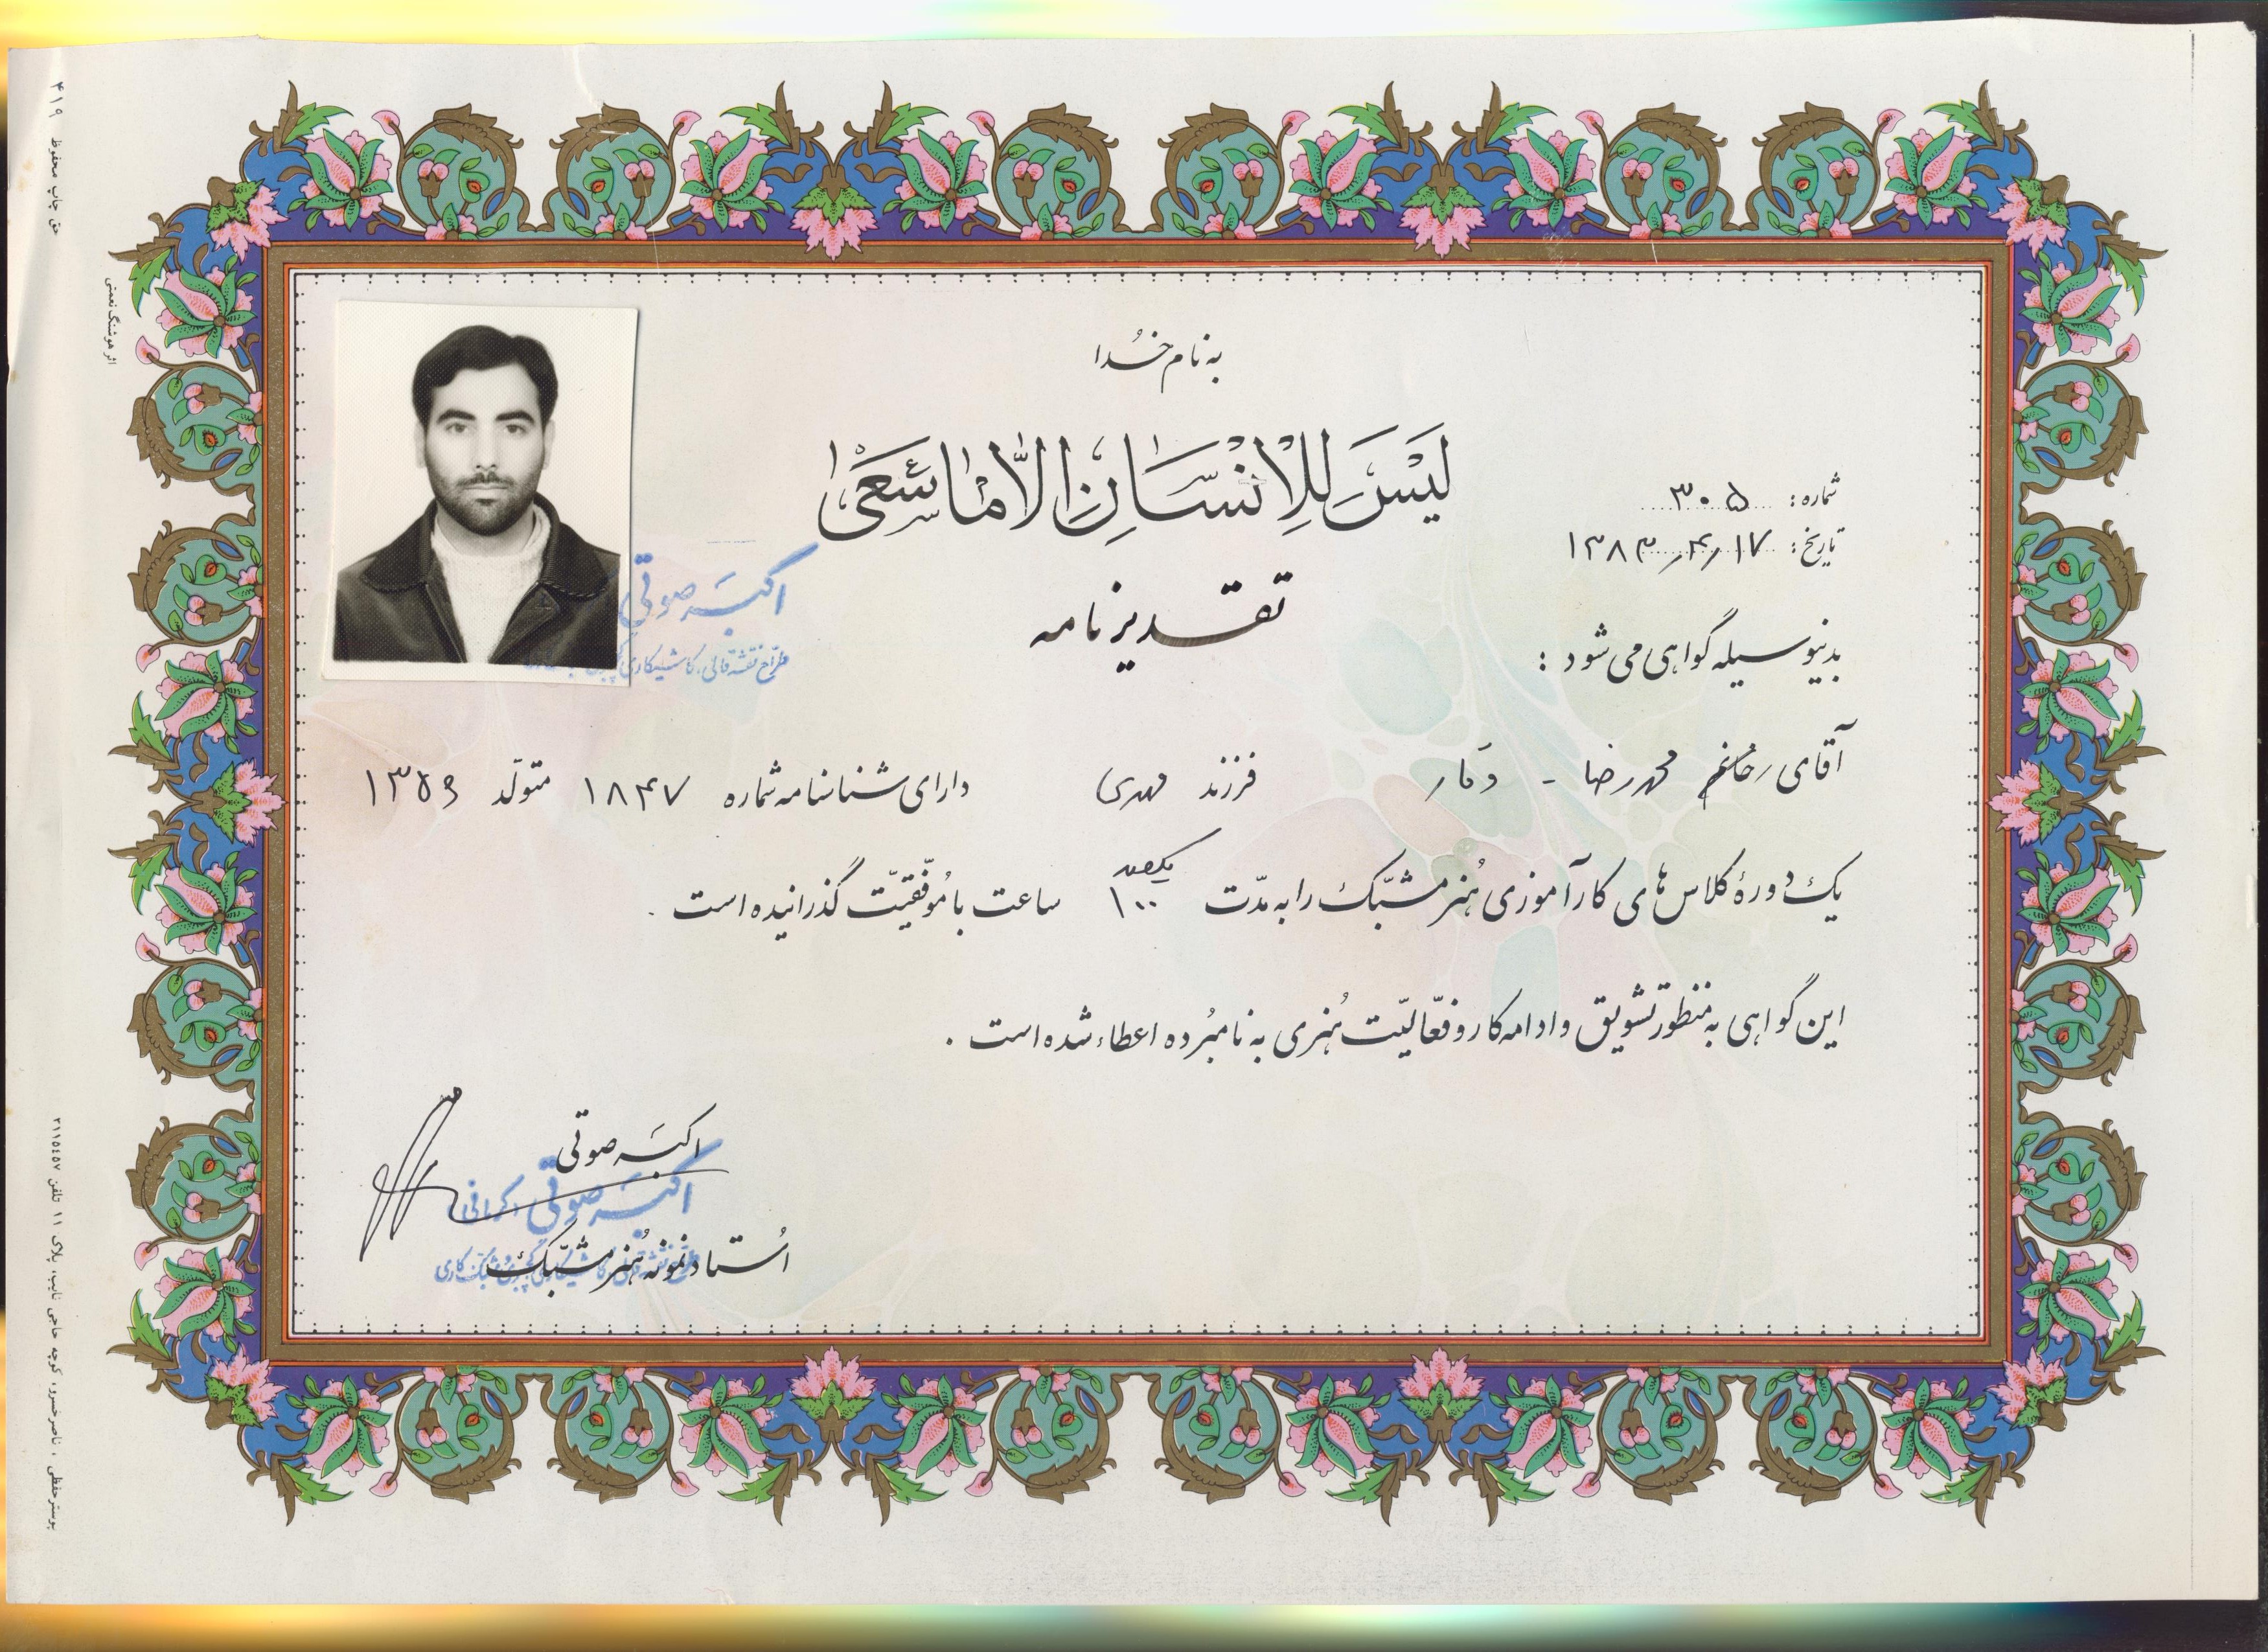 به نام خدا
لَیْسَ لِلْاِنْسَانِ اِلّا مٰا سَعَیٰ
شماره: ۳۰۵
تاریخ: ۱۳۸۳/۴/۱۷
تقدیرنامه
بدینوسیله گواهی می شود :
آقای / خانم محمد رضا - وقار فرزند مهدی دارای شناسنامه شماره ۱۸۴۷ متولّد ۱۳۵۶
یک دورهٔ کلاس های کارآموزی هُنر مشبّک را به مدّت ۱۰۰ یکصد ساعت با مُوفّقیّت گذرانیده است .
این گواهی به منظور تشویق و ادامه کار و فعّالیّت هُنری به نامبُرده اعطاء شده است .
اکبَر صوتی
اُستاد نمونه هُنر مشبّک
اکبَر صوتی
طراح نقشه قالی، کاشیکاری
اکبَر صوتی
حق چاپ محفوظ ۴۱۹
اثر هوشنگ نعمتی
پوستر حفظی . ناصرخسرو، کوچه حاجی نایب، پلاک ۱۱ تلفن ۳۱۱۵۴۵۷